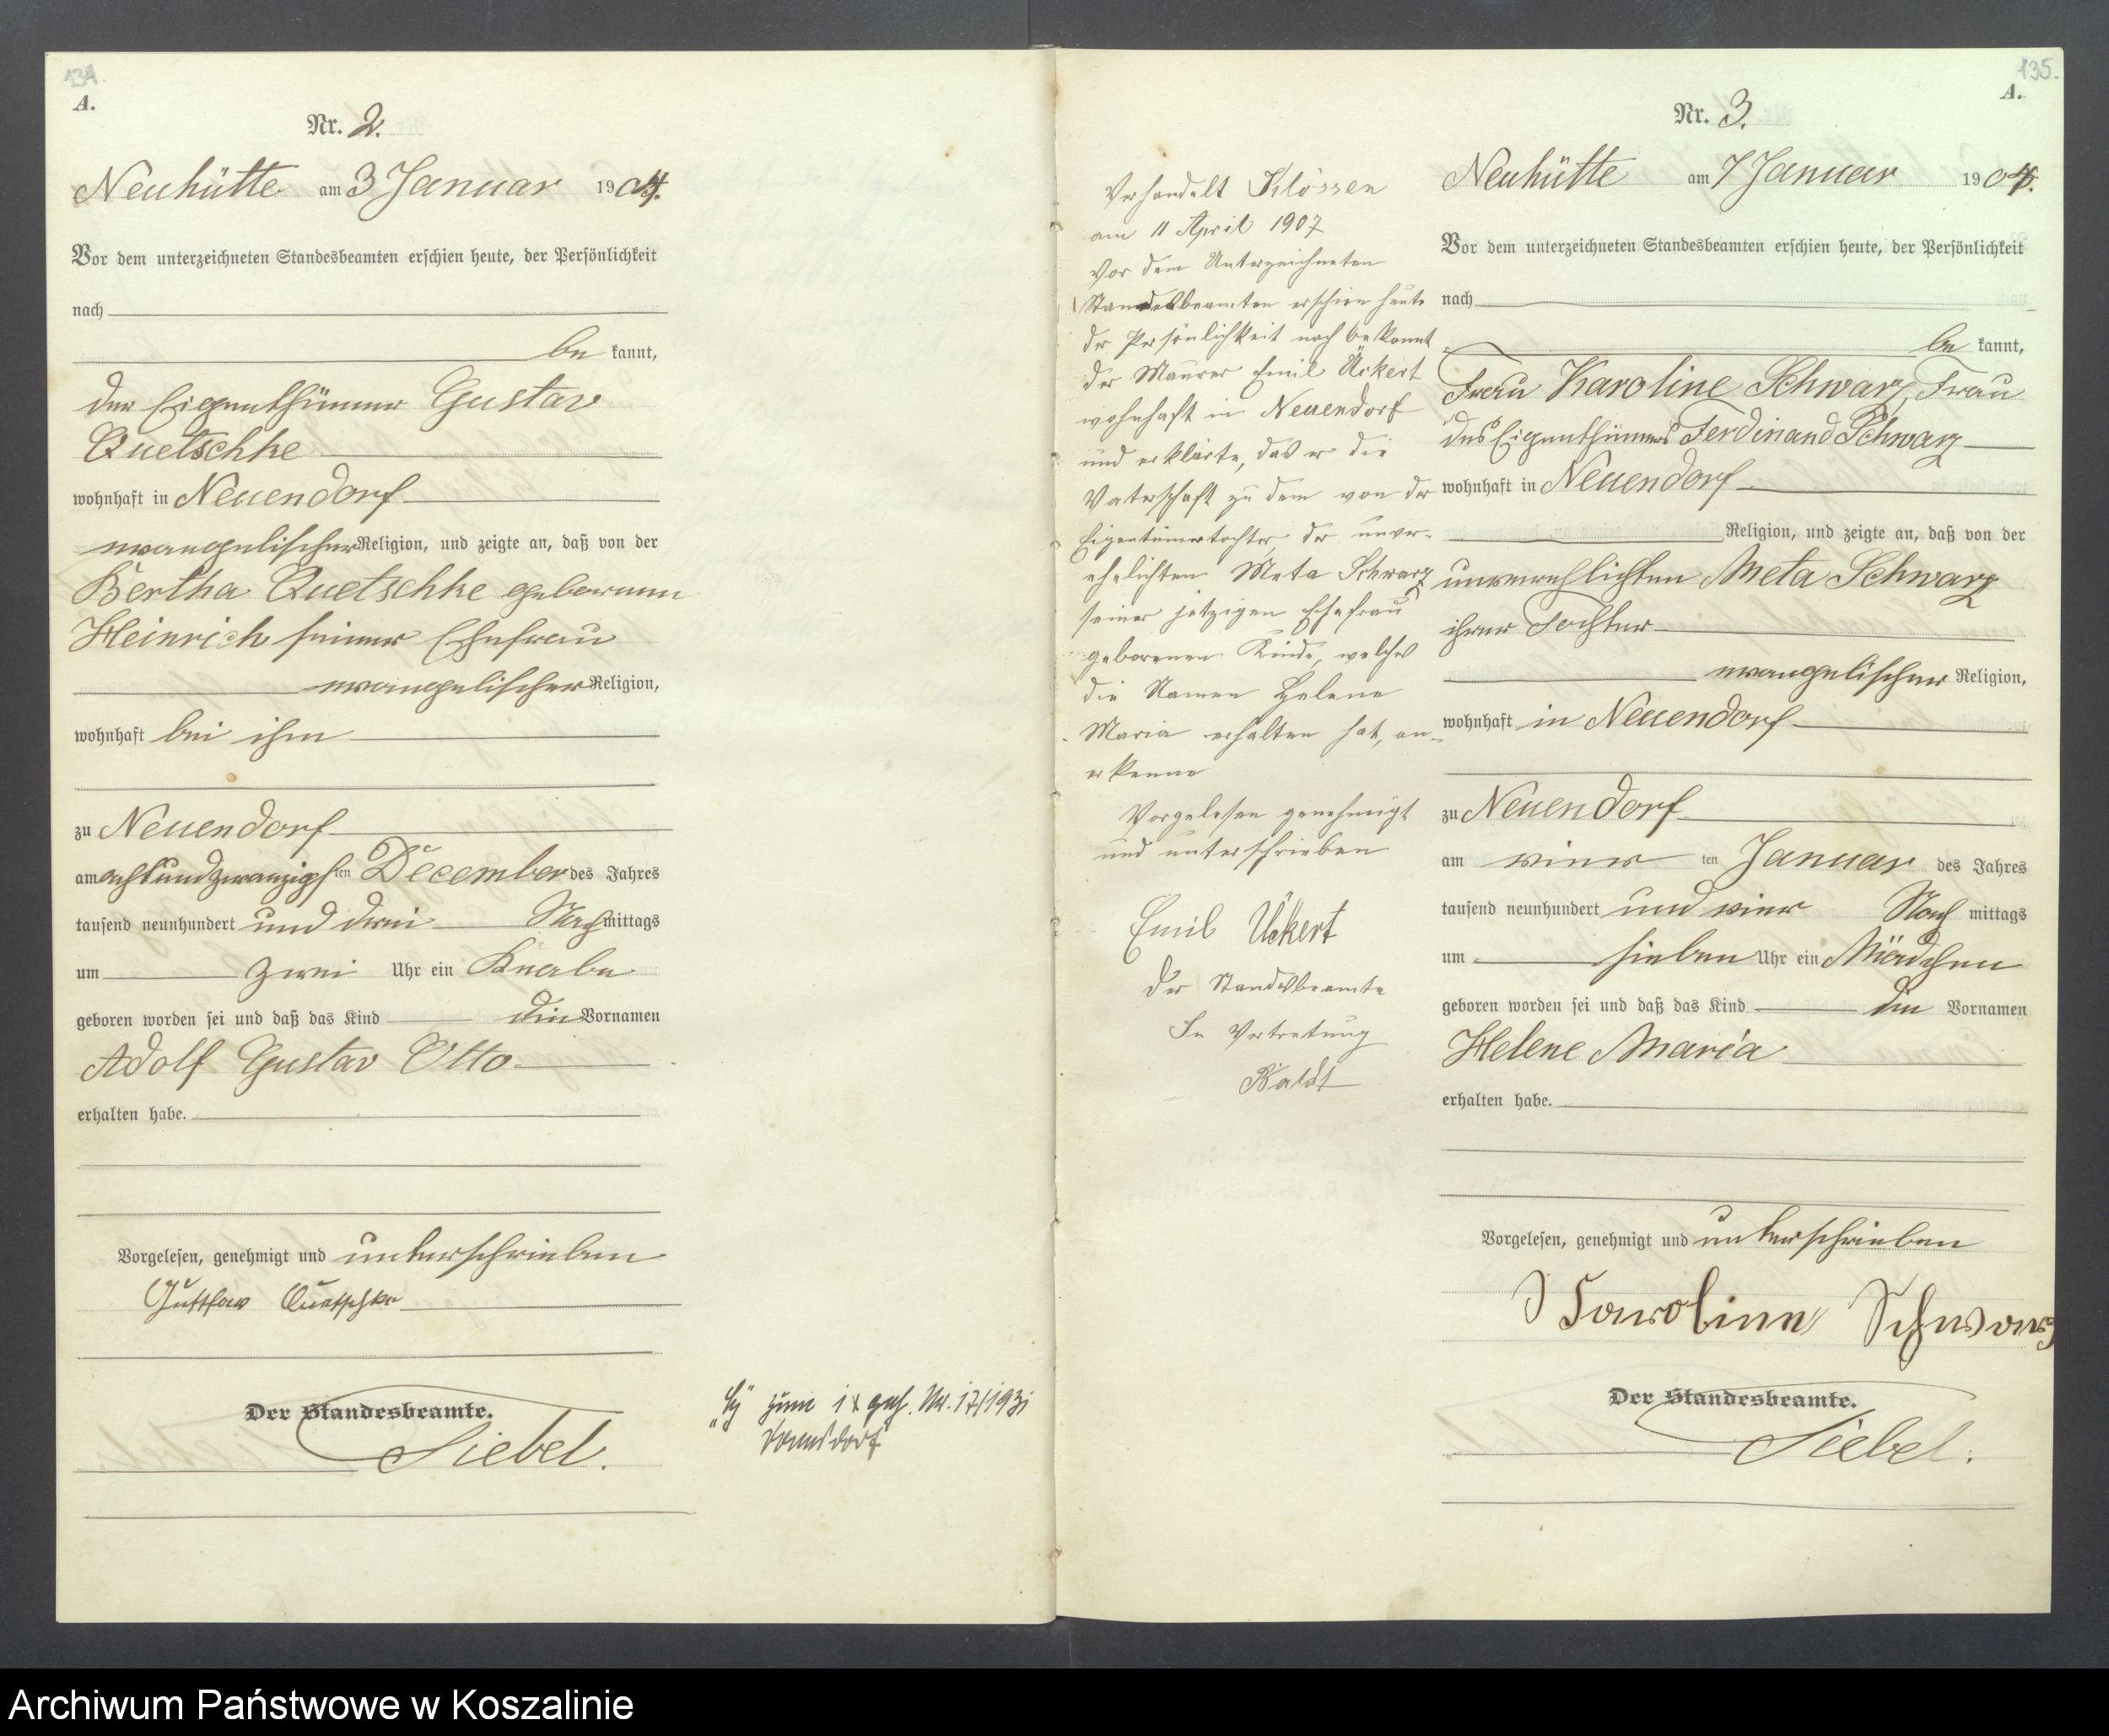 134.
A.
Nr. 2.
Neuhütte am 3 Januar 1904.
Vor dem unterzeichneten Standesbeamten erschien heute, der Persönlichkeit
nach
be kannt,
der Eigenthümer Gustav
Quetschke
wohnhaft in Neuendorf
evangelischer Religion, und zeigte an, daß von der
Bertha Quetschke geborenen
Heinrich seiner Ehefrau
evangelischer Religion,
wohnhaft bei ihm
zu Neuendorf
am achtundzwanzigsten December des Jahres
tausend neunhundert und drei Nachmittags
um zwei Uhr ein Knabe
geboren worden sei und daß das Kind die Vornamen
Adolf Gustav Otto
erhalten habe.
Vorgelesen, genehmigt und unterschrieben
Gusttav Quetschke
Der Standesbeamte.
Siebel.
Nr. 17/1931
135.
A.
Nr. 3.
Neuhütte am 7 Januar 1904.
Vor dem unterzeichneten Standesbeamten erschien heute, der Persönlichkeit
nach
be kannt,
Frau Karoline Schwarz, Frau
des Eigenthümers Ferdinand Schwarz
wohnhaft in Neuendorf
Religion, und zeigte an, daß von der
unverehlichten Meta Schwarz
ihrer Tochter
evangelischer Religion,
wohnhaft in Neuendorf
zu Neuendorf
am vier ten Januar des Jahres
tausend neunhundert und vier Nach mittags
um sieben Uhr ein Mädchen
geboren worden sei und daß das Kind die Vornamen
Helene Maria
erhalten habe.
Vorgelesen, genehmigt und unterschrieben
Karoline Schwarz
Der Standesbeamte.
Siebel.
Verhandelt Klössen
am 11 April 1907
Vor dem Unterzeichneten
Standesbeamten erschien heute
der Persönlichkeit nach bekannt
der Maurer Emil Ückert
wohnhaft in Neuendorf
und erklärte, das er die
Vaterschaft zu dem von der
Eigentümertochter, der unver-
ehelichten Meta Schwarz
seiner jetzigen Ehefrau
geborenen Kinde, welches
die Namen Helene
Maria erhalten hat, an-
erkenne
Vorgelesen genehmigt
und unterschrieben
Emil Ückert
Der Standesbeamte
In Vertretung
Baldt
Archiwum Państwowe w Koszalinie